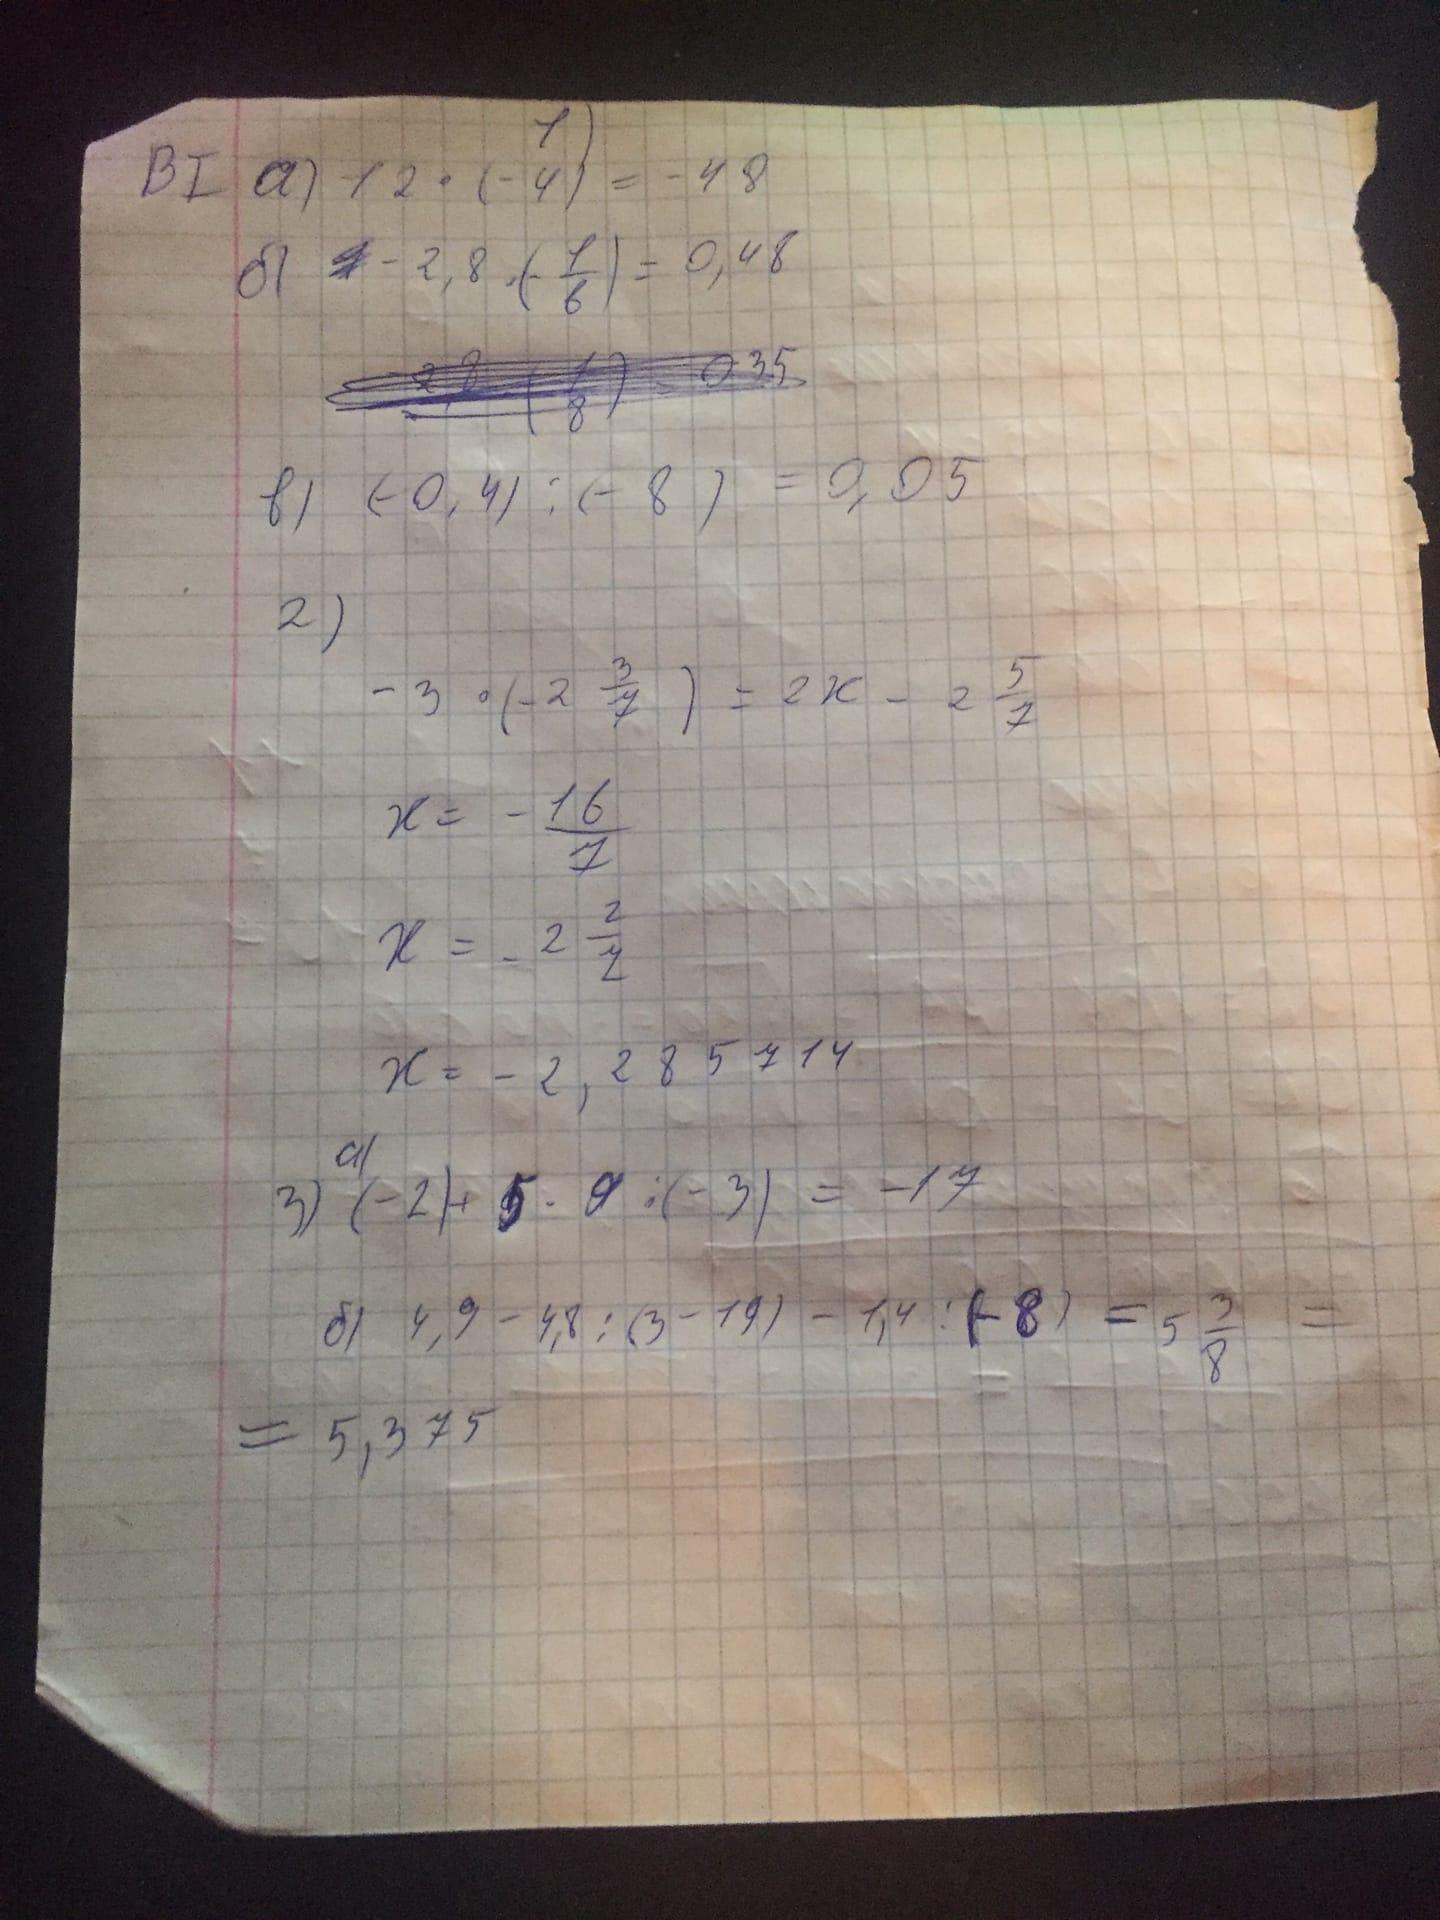 1)
ВI а) 12 · (-4) = -48
б) -2,8 · (-1/6) = 0,48
в) (-0,4) : (-8) = 0,05
2)
-3 · (-2 3/7) = 2x - 2 5/7
x = -16/7
x = -2 2/7
x = -2,285714
а)
3) (-2) + 5 · 9 : (-3) = -17
б) 4,9 - 4,8 : (3 - 19) - 1,4 : (-8) = 5 3/8 =
= 5,375